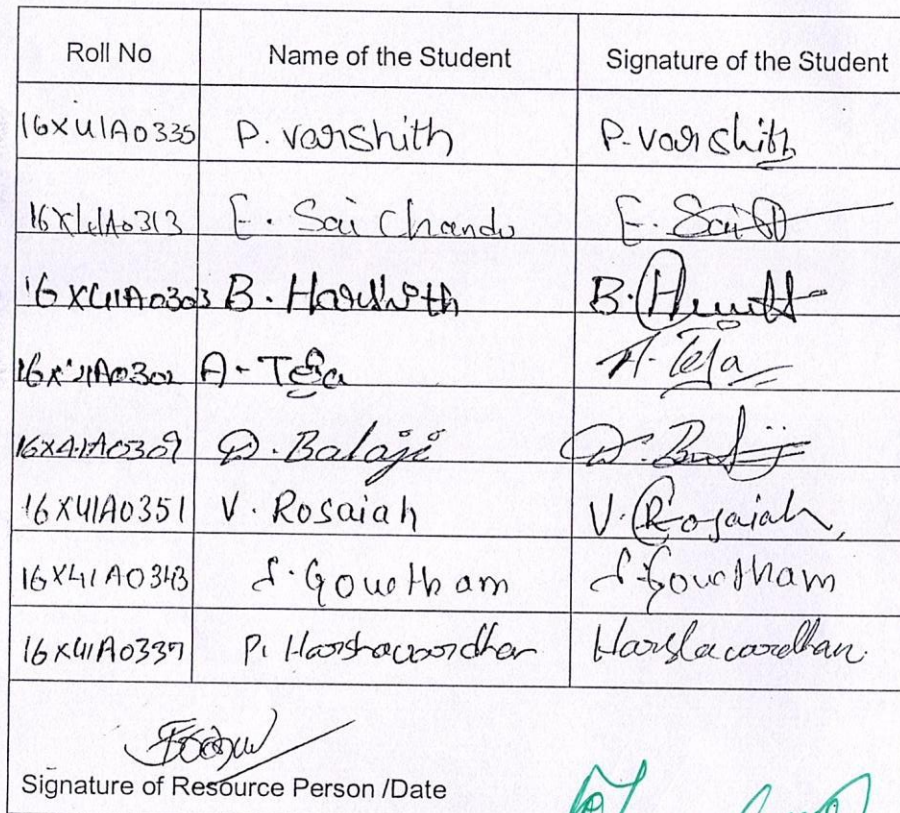 Roll No Name of the Student Signature of the Student
16X41A0335 P. Varshith P. Varshith
16X41A0313 E. Sai Chandu E. Sai
16X41A0303 B. Harshith B.
16X41A0302 A. Teja A. Teja
16X41A0309 D. Balaji D. Balaji
16X41A0351 V. Rosaiah V. Rosaiah
16X41A0343 S. Goutham S. Goutham
16X41A0337 P. Harshavardhan Harshavardhan
Signature of Resource Person /Date